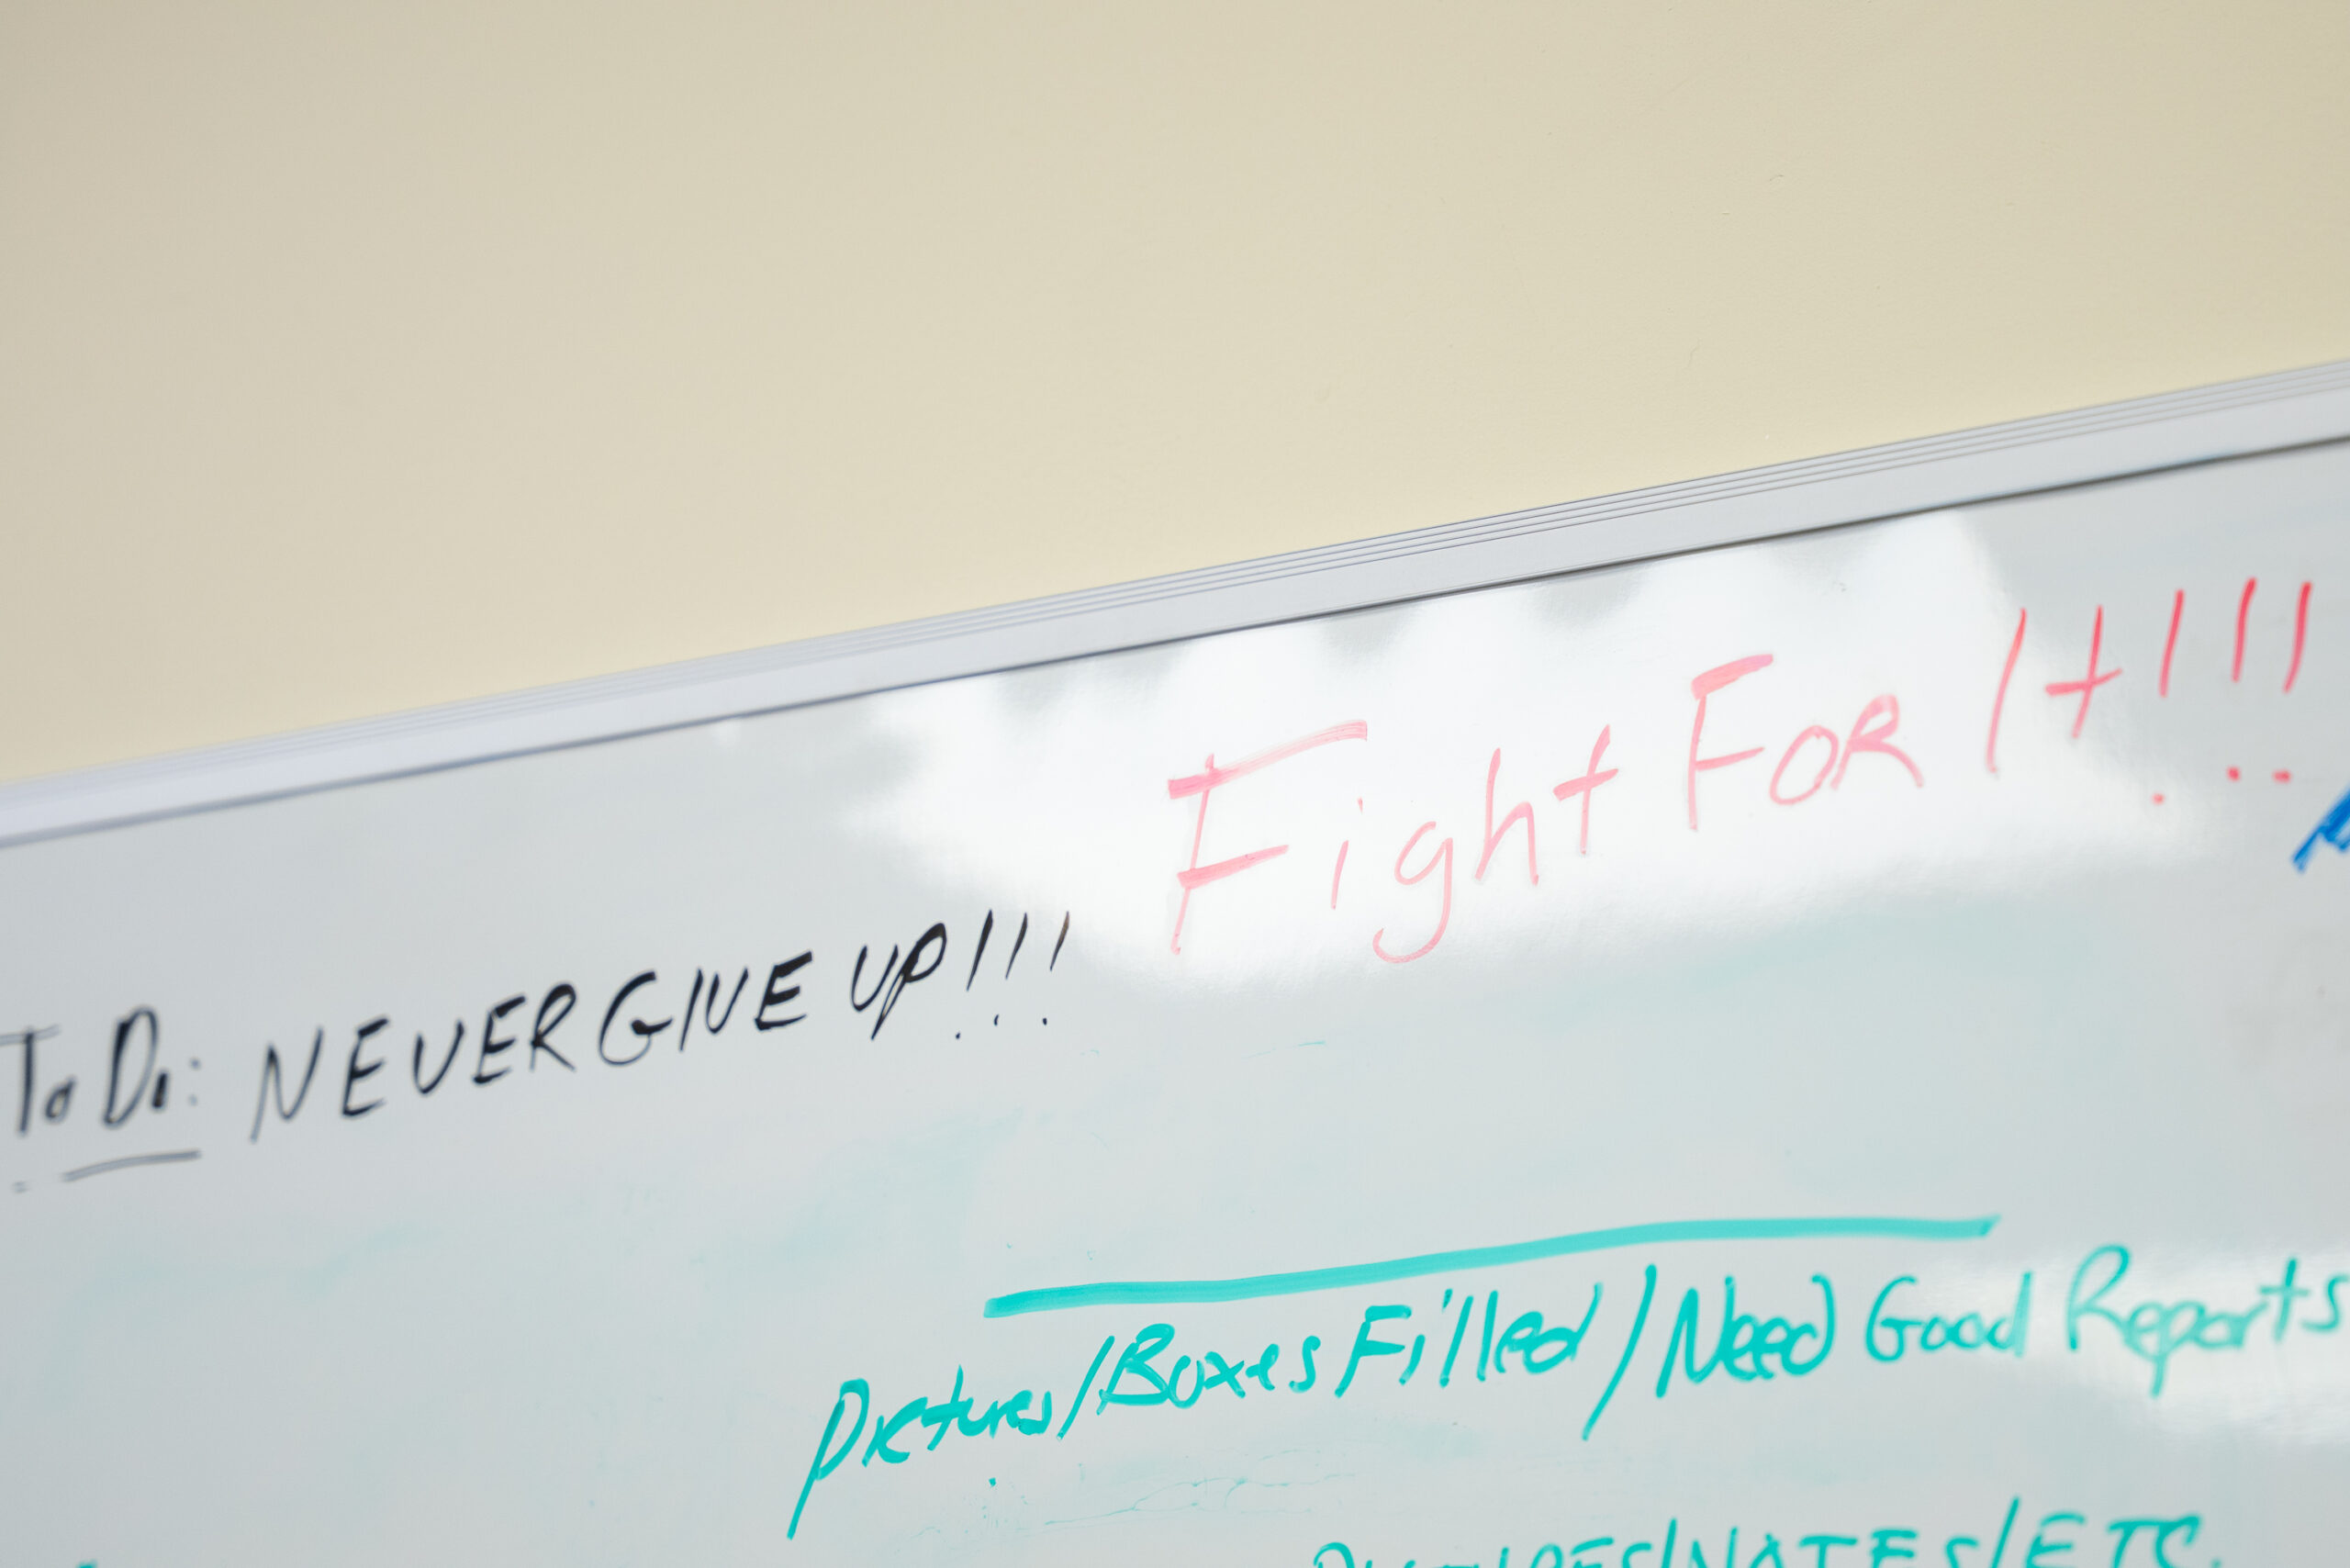 Fight FOR It!!!
To Do: NEVER GIVE UP!!!
Pictures/Boxes Filled/Need Good Reports
/NOTES/ETC.